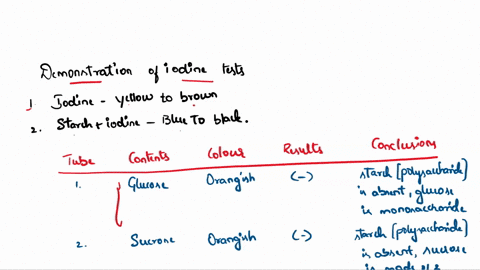 Demonstration of iodine tests
1. Iodine - yellow to brown
2. Starch + iodine - Blue To black.
Tube Contents Colour Results Conclusions
1. Glucose Orangish (-) starch [polysaccharide]
is absent, glucose
is monosaccharide
2. Sucrose Orangish (-) starch [polysaccharide]
is absent, sucrose
is made